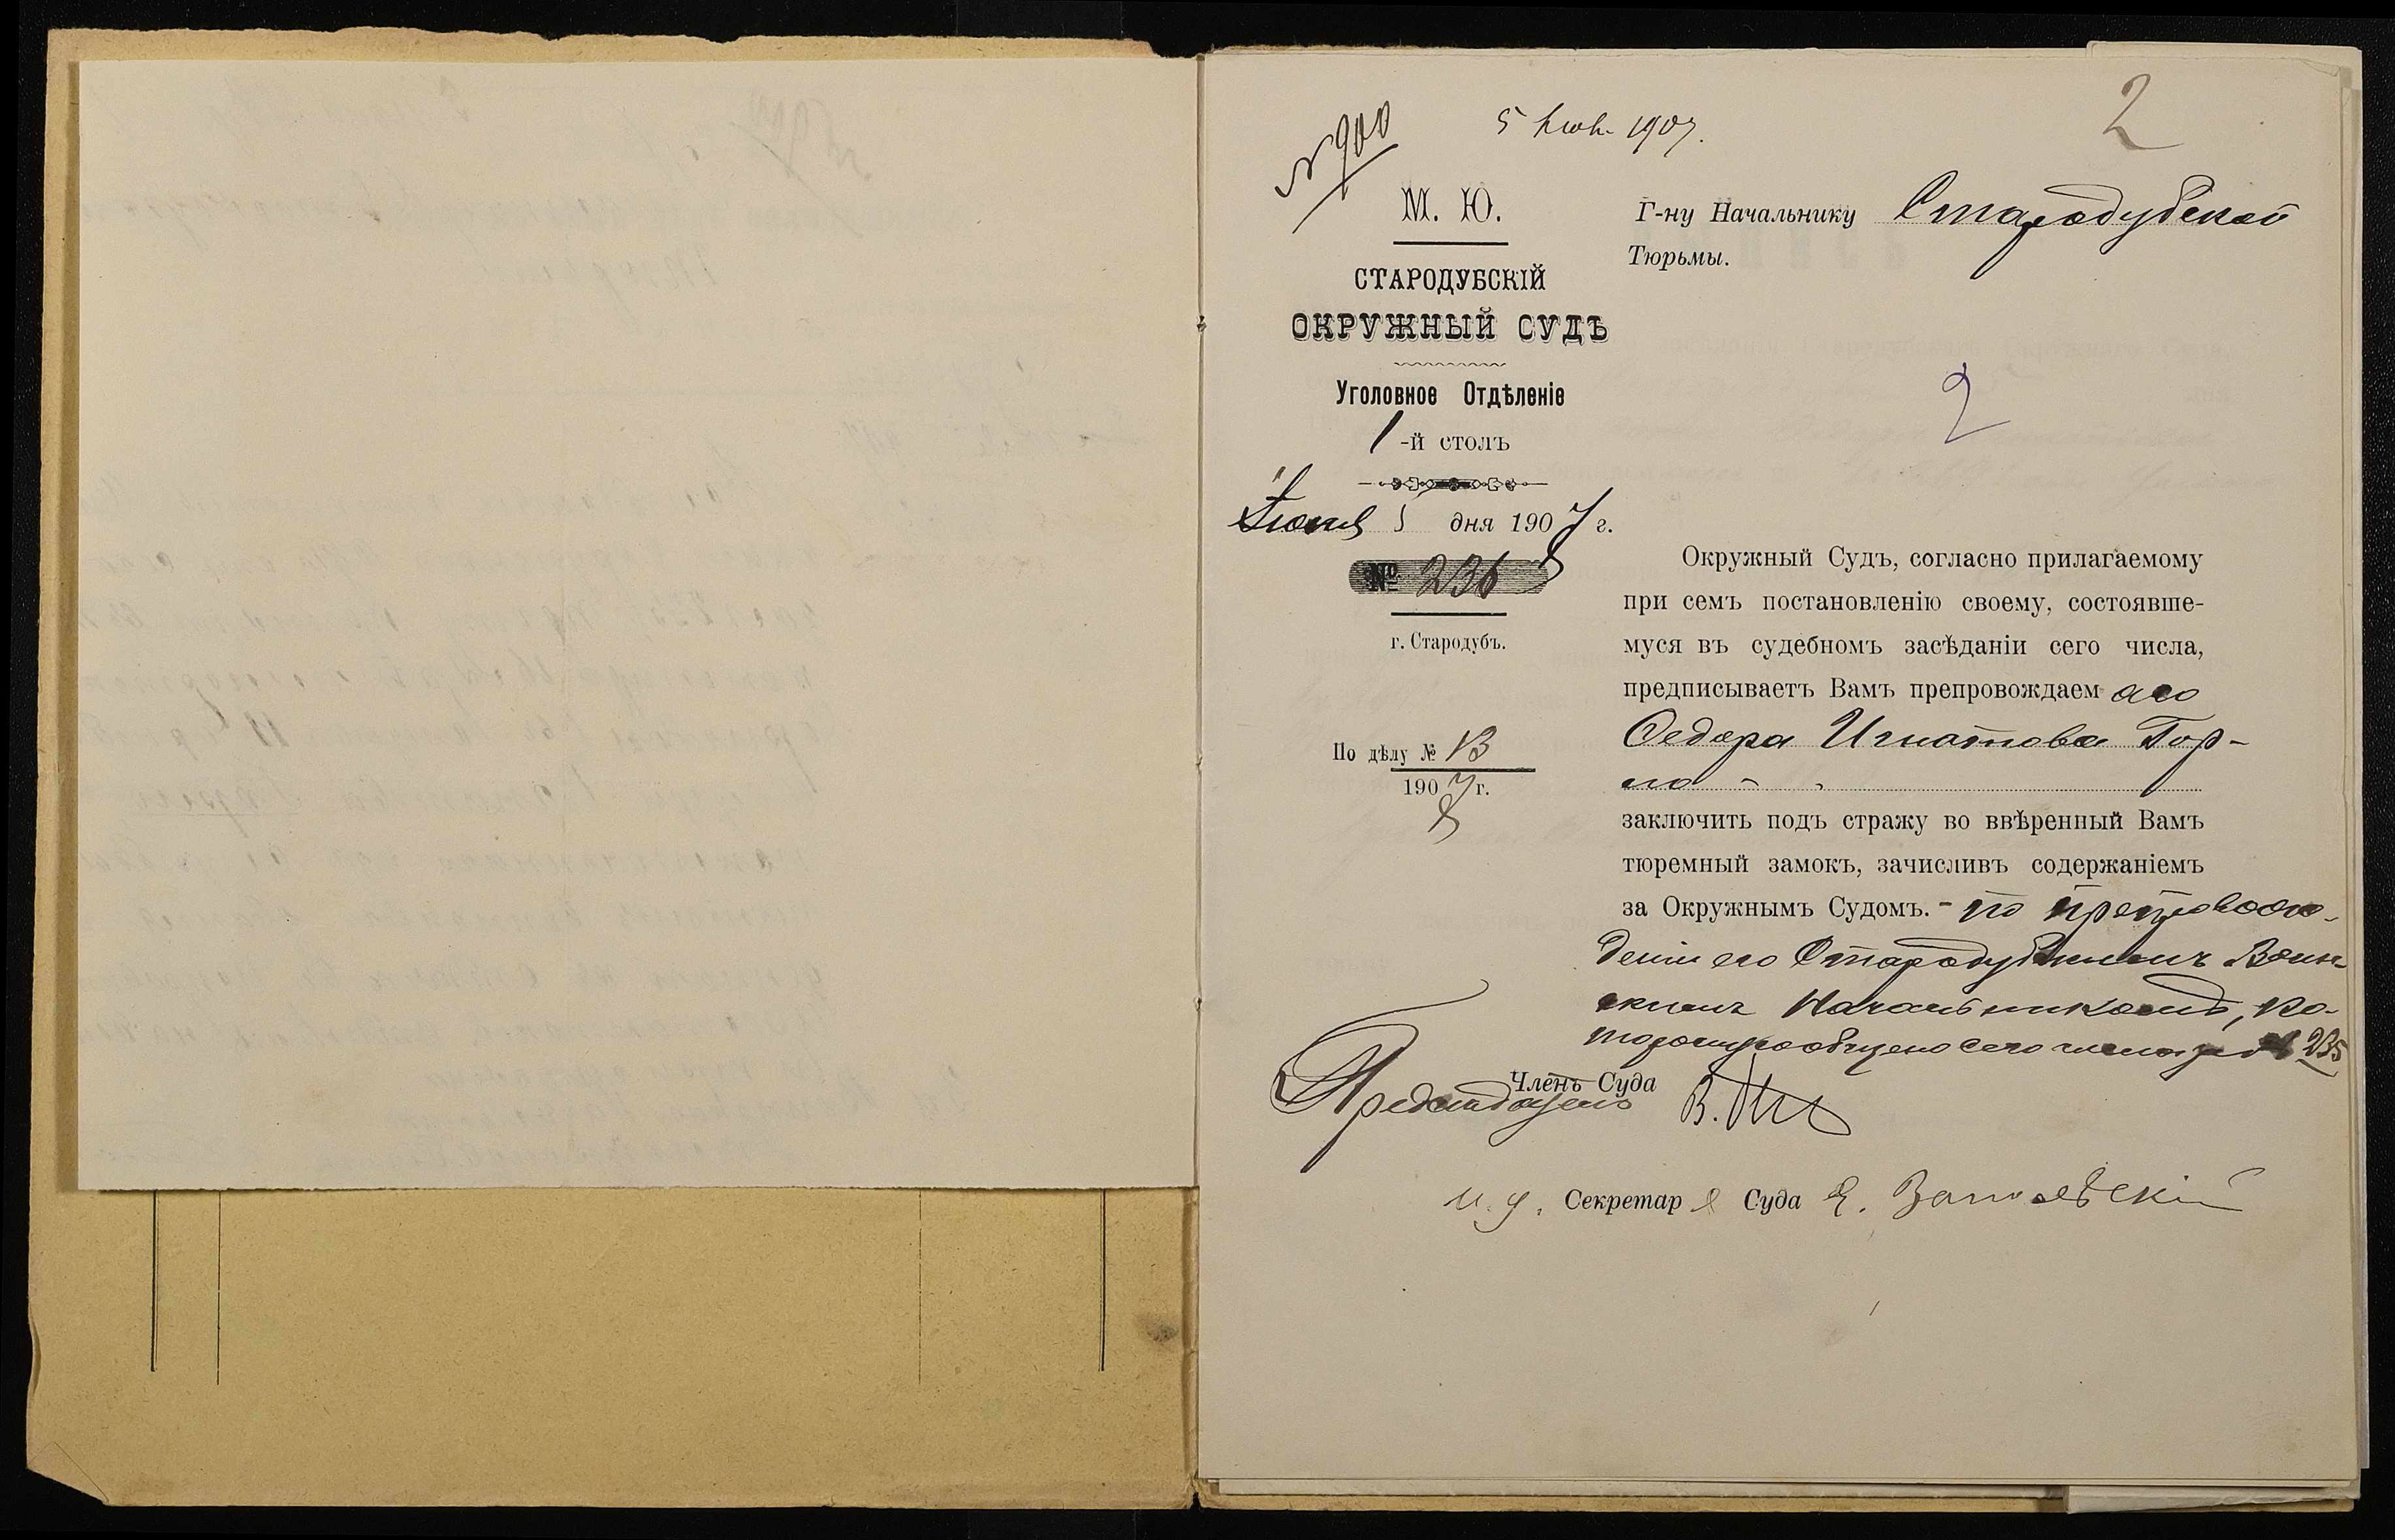 2
№ 900
5 Июн. 1907.
М. Ю.
СТАРОДУБСКІЙ
ОКРУЖНЫЙ СУДЪ
Уголовное Отдѣленіе
1-й столъ
Іюня 5 дня 1907 г.
№ 236
г. Стародубъ.
По дѣлу № 13
1907 г.
Г-ну Начальнику Стародубской
Тюрьмы.
2
Окружный Судъ, согласно прилагаемому
при семъ постановленію своему, состоявше-
муся въ судебномъ засѣданіи сего числа,
предписываетъ Вамъ препровождаемаго
Федора Игнатова Гор-
ло
заключить подъ стражу во ввѣренный Вамъ
тюремный замокъ, зачисливъ содержаніемъ
за Окружнымъ Судомъ. - по препровож-
деніи его Стародубскимъ Воин-
скимъ Начальникомъ, ко-
торому сообщено сего числа за № 235
Членъ Суда
Предсѣдатель В.
И. д. Секретаря Суда